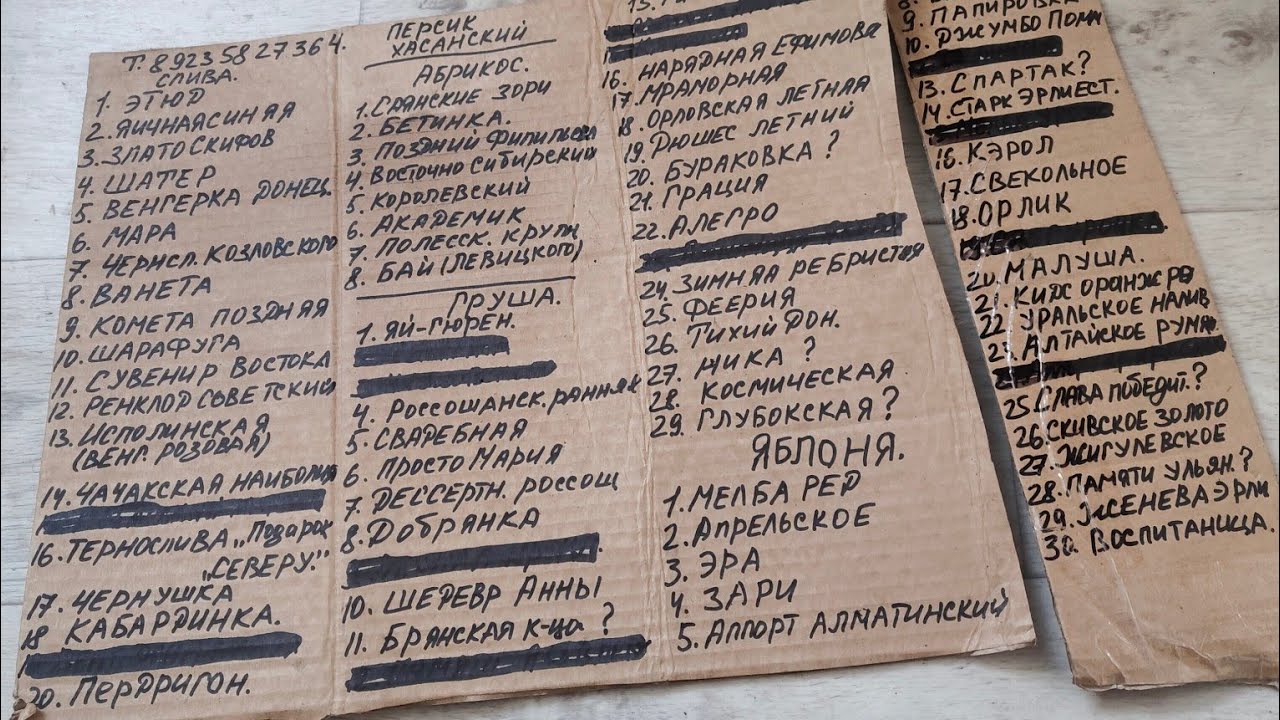 Т. 89235827364.
СЛИВА.
1. ЭТЮД
2. ЯИЧНАЯ СИНЯЯ
3. ЗЛАТО СКИФОВ
4. ШАТЕР
5. ВЕНГЕРКА ДОНЕЦ.
6. МАРА
7. ЧЕРНСЛ. КОЗЛОВСКОГО
8. ВАНЕТА
9. КОМЕТА ПОЗДНЯЯ
10. ШАРАФУГА
11. СУВЕНИР ВОСТОКА
12. РЕНКЛОД СОВЕТСКИЙ
13. ИСПОЛИНСКАЯ
(ВЕНГ. РОЗОВАЯ)
14. ЧАЧАКСКАЯ НАИБОЛ
16. ТЕРНОСЛИВА „ПОДАРОК
„СЕВЕРУ."
17. ЧЕРНУШКА
18 КАБАРДИНКА.
20. ПЕРДРИГОН.
ПЕРСИК
ХАСАНСКИЙ
АБРИКОС.
1. САЯНСКИЕ ЗОРИ
2. БЕТИНКА.
3. ПОЗДНИЙ
4. ВОСТОЧНО СИБИРСКИЙ
5. КОРОЛЕВСКИЙ
6. АКАДЕМИК
7. ПОЛЕССК. КРУПН
8. БАЙ (ЛЕВИЦКОГО)
ГРУША.
1. ЯЙ-ГЮРЕН.
4. РОССОШАНСК. РАННЯЯ
5. СВАДЕБНАЯ
6. ПРОСТО МАРИЯ
7. ДЕССЕРТН. РОССОШ
8. ДОБРЯНКА
10. ШЕДЕВР АННЫ
11. БРЯНСКАЯ К-ЦА ?
15.
16. НАРЯДНАЯ ЕФИМОВА
17. МРАМОРНАЯ
18. ОРЛОВСКАЯ ЛЕТНЯЯ
19. ДЮШЕС ЛЕТНИЙ
20. БУРАКОВКА ?
21. ГРАЦИЯ
22. АЛЕГРО
24. ЗИМНЯЯ РЕБРИСТАЯ
25. ФЕЕРИЯ
26. ТИХИЙ ДОН.
27. НИКА ?
28. КОСМИЧЕСКАЯ
29. ГЛУБОКСКАЯ ?
ЯБЛОНЯ.
1. МЕЛБА РЕД
2. АПРЕЛЬСКОЕ
3. ЭРА
4. ЗАРИ
5. АППОРТ АЛМАТИНСКИЙ
8.
9. ПАПИРОВКА
10. ДЖУМБО ПОМА
13. СПАРТАК ?
14. СТАРК ЭРЛИЕСТ.
16. КЭРОЛ
17. СВЕКОЛЬНОЕ
18. ОРЛИК
20. МАЛУША.
21. КИДХ ОРАНЖ РЕ
22. УРАЛЬСКОЕ НАЛИВ
23. АЛТАЙСКОЕ РУМЯ
25. СЛАВА ПОБЕДИТ. ?
26. СКИВСКОЕ ЗОЛОТО
27. ЖИГУЛЕВСКОЕ
28. ПАМЯТИ УЛЬЯН. ?
29. ЖЕНЕВА ЭРЛИ
30. ВОСПИТАНИЦА.